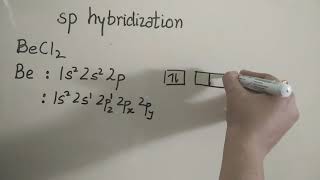 sp hybridization
BeCl₂
Be : 1s² 2s² 2p ⥮
: 1s² 2s¹ 2p¹z 2px 2py